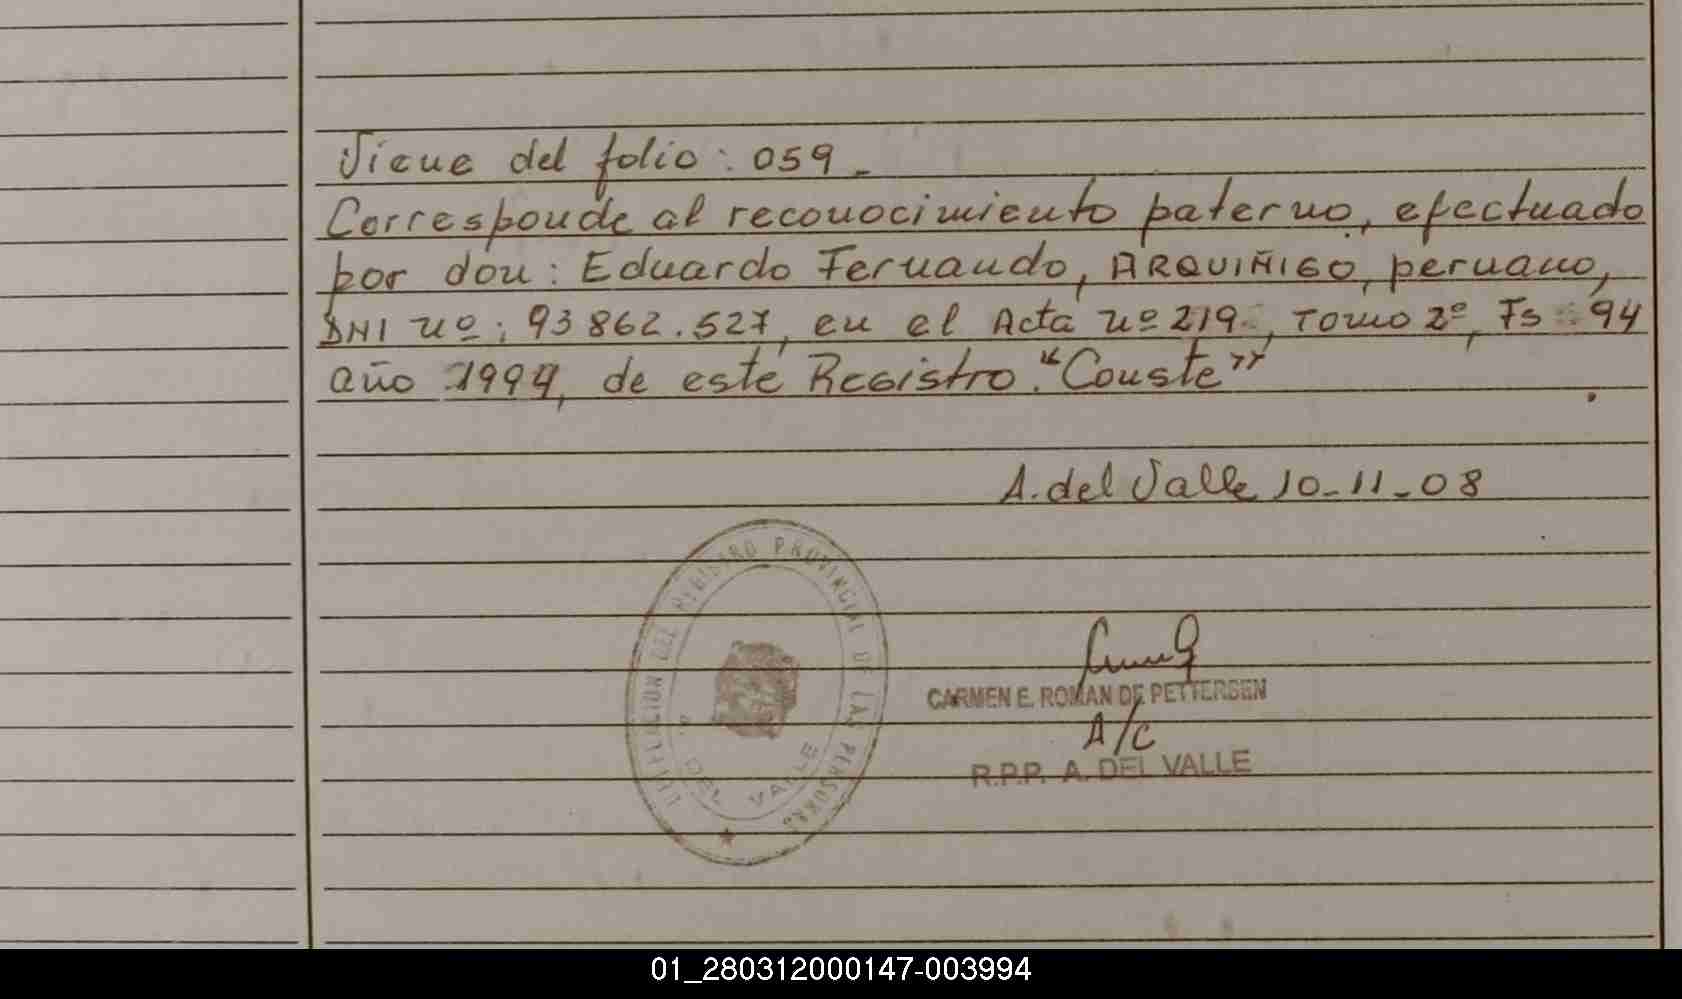 Viene del folio: 059_
Corresponde al reconocimiento paterno, efectuado
por don: Eduardo Fernando, ARQUIÑIGO, peruano,
DNI nº: 93862.527, en el Acta nº 219, Tomo 2º, Fs 94
año 1994, de este Registro. "Conste"
A. del Valle 10-11-08
DEL REGISTRO PROVINCIAL DE LAS PERSONAS
A. DEL VALLE
CARMEN E. ROMAN DE PETTERSEN
A/C
R.P.P. A. DEL VALLE
01_280312000147-003994